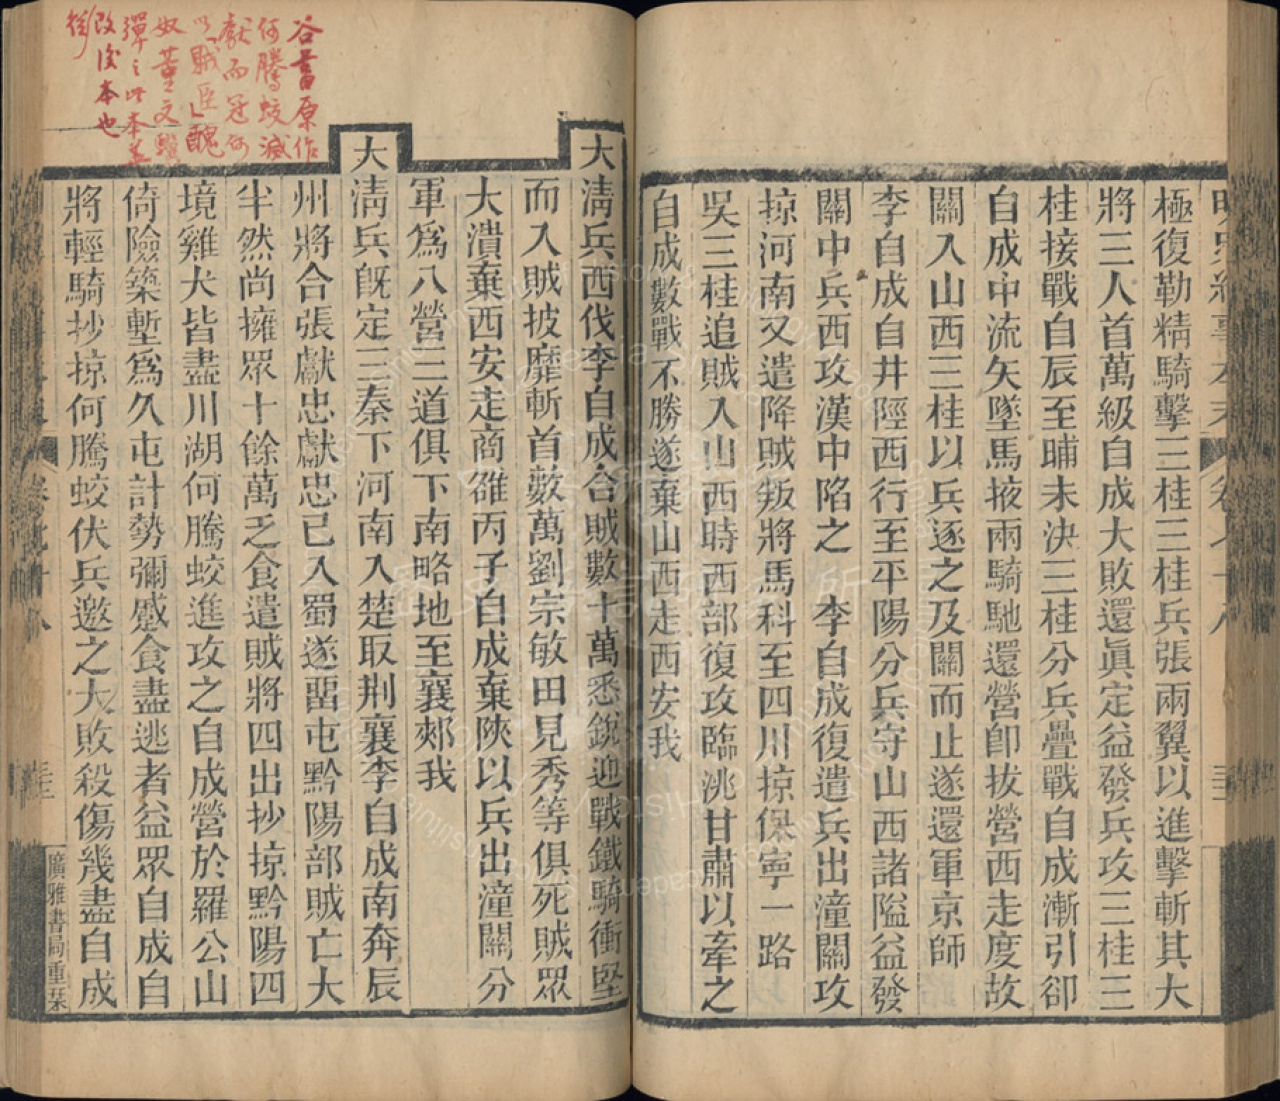 極復勒精騎擊三桂三桂兵張兩翼以進擊斬其大
將三人首萬級自成大敗還眞定益發兵攻三桂三
桂接戰自辰至晡未決三桂分兵疊戰自成漸引卻
自成中流矢墜馬掖兩騎馳還營卽拔營西走度故
關入山西三桂以兵逐之及關而止遂還軍京師
李自成自井陘西行至平陽分兵守山西諸隘益發
關中兵西攻漢中陷之 李自成復遣兵出潼關攻
掠河南又遣降賊叛將馬科至四川掠保寧一路
吳三桂追賊入山西時西部復攻臨洮甘肅以牽之
自成數戰不勝遂棄山西走西安我
大淸兵西伐李自成合賊數十萬悉銳迎戰鐵騎衝堅
而入賊披靡斬首數萬劉宗敏田見秀等俱死賊眾
大潰棄西安走商雒丙子自成棄陝以兵出潼關分
軍爲八營三道俱下南略地至襄郟我
大淸兵旣定三秦下河南入楚取荆襄李自成南奔辰
州將合張獻忠獻忠已入蜀遂畱屯黔陽部賊亡大
半然尚擁眾十餘萬乏食遣賊將四出抄掠黔陽四
境雞犬皆盡川湖何騰蛟進攻之自成營於羅公山
倚險築塹爲久屯計勢彌蹙食盡逃者益眾自成自
將輕騎抄掠何騰蛟伏兵邀之大敗殺傷幾盡自成
廣雅書局重栞
谷書原作
何騰蛟滅
獻而冠何
以「賊臣」醜
奴董文驥
彈之此本蓋
改後本也